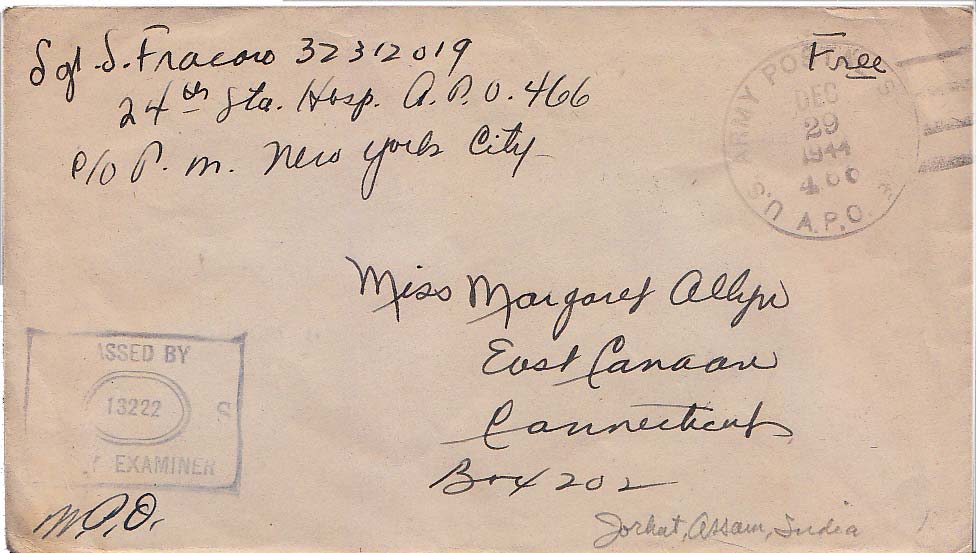 Sgt. S. Fracaro 32312019
24th Sta. Hosp. A.P.O. 466
c/o P.M. New York City
Free
U.S. ARMY POSTAL
DEC
29
1944
400
A.P.O.
Miss Margaret Allyn
East Canaan
Connecticut
Box 202
ASSED BY
13222 S
Y EXAMINER
M.P.O.
Jorhat, Assam, India